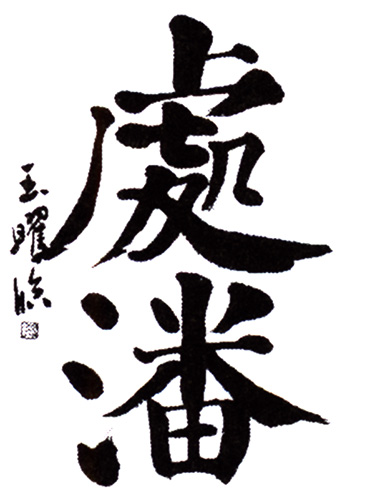 處潘
玉曜臨